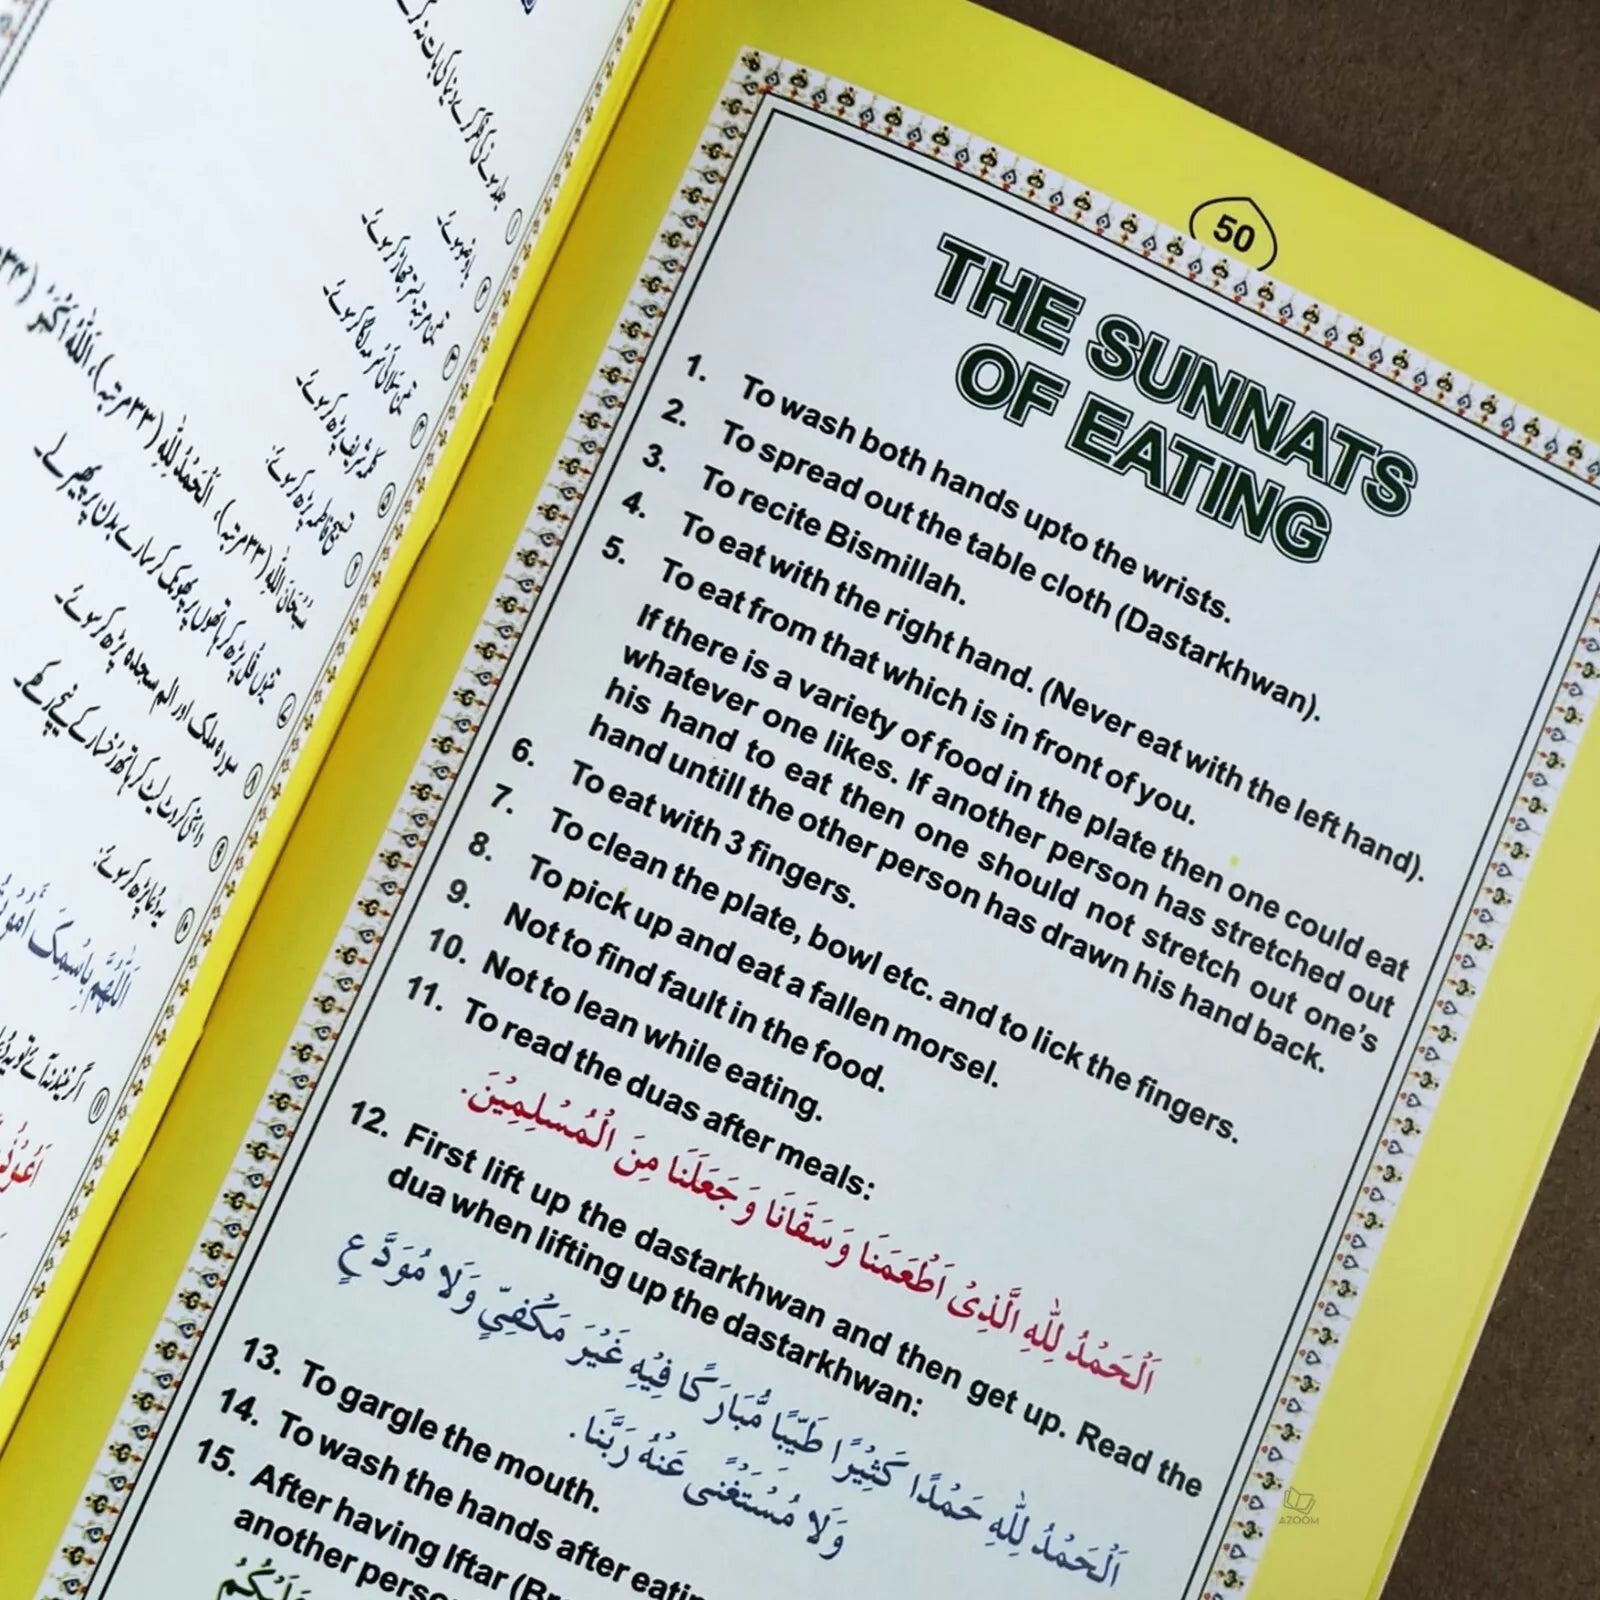 جلد سونے کی فکر کرے دنیا کی بات نہ کرے
۱ باوضو سوئے۔
۲ تین مرتبہ بستر جھاڑ کر سوئے۔
۳ تین سلائی سرمہ لگا کر سوئے۔
۴ کلمہ شریف پڑھ کر سوئے۔
۵ تسبیح فاطمہ پڑھ کر سوئے:
سُبْحَانَ اللّٰهِ (۳۳ مرتبہ)، اَلْحَمْدُ لِلّٰهِ (۳۳ مرتبہ)، اَللّٰهُ اَكْبَرُ
تینوں قُل پڑھ کر ہاتھوں پر پھونک کر سارے بدن پر پھیر لے۔
۸ سورہ ملک اور الم سجدہ پڑھ کر سوئے۔
۹ داہنی کروٹ لیٹ کر ہاتھ رُخسار کے نیچے رکھے۔
۱۰ یہ دُعا پڑھ کر سوئے:
اَللّٰهُمَّ بِاسْمِكَ
۱۱ اگر نیند نہ آئے تو یہ
50
THE SUNNATS
OF EATING
1. To wash both hands upto the wrists.
2. To spread out the table cloth (Dastarkhwan).
3. To recite Bismillah.
4. To eat with the right hand. (Never eat with the left hand).
5. To eat from that which is in front of you.
If there is a variety of food in the plate then one could eat
whatever one likes. If another person has stretched out
his hand to eat then one should not stretch out one's
hand untill the other person has drawn his hand back.
6. To eat with 3 fingers.
7. To clean the plate, bowl etc. and to lick the fingers.
8. To pick up and eat a fallen morsel.
9. Not to find fault in the food.
10. Not to lean while eating.
11. To read the duas after meals:
اَلْحَمْدُ لِلّٰهِ الَّذِىْ اَطْعَمَنَا وَسَقَانَا وَجَعَلَنَا مِنَ الْمُسْلِمِيْنَ.
12. First lift up the dastarkhwan and then get up. Read the
dua when lifting up the dastarkhwan:
اَلْحَمْدُ لِلّٰهِ حَمْدًا كَثِيْرًا طَيِّبًا مُّبَارَكًا فِيْهِ غَيْرَ مَكْفِيٍّ وَلَا مُوَدَّعٍ
وَلَا مُسْتَغْنًى عَنْهُ رَبَّنَا.
13. To gargle the mouth.
14. To wash the hands after
15. After having Iftar
another
AZOOM